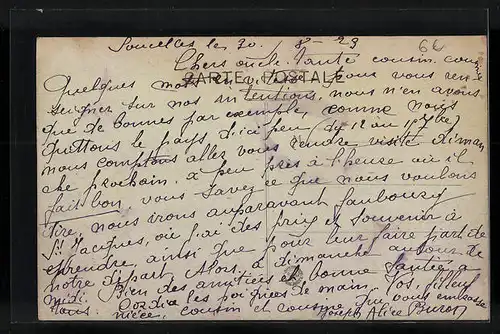 Soucelles le 30. 8-29
66
Chers oncle. tante cousin. cous
CARTE POSTALE
Quelques mots vous ren
seigner sur nos intentions, nous n'en avons
que de bonnes par exemple, comme nous
quittons le pays d'ici peu (du 12 au
nous comptons aller vous rendre visite diman
che prochain. à peu près à l'heure où il
fait bon, vous savez ce que nous voulons
dire, nous irons auparavant faubourg
St Jacques, où j'ai des prix et souvenir à
prendre, ainsi que pour leur faire part de
notre départ. Alors, à dimanche autour de
midi. Bien des amitiés et bonne santé à
tous. Cordiales poignées de main. Vos filleul
nièce, cousin et cousine que vous embrasse
Joseph Alice